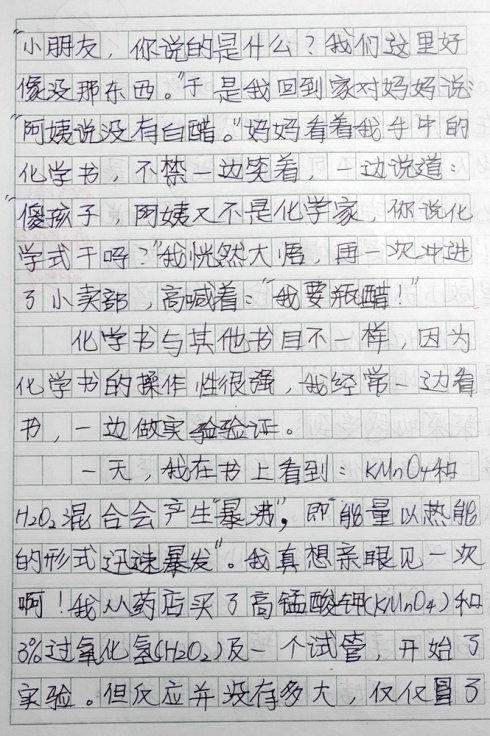 "小朋友，你说的是什么？我们这里好
像没那东西。"于是我回到家对妈妈说
"阿姨说没有白醋。"妈妈看着我手中的
化学书，不禁一边笑着，一边说道：
"傻孩子，阿姨又不是化学家，你说化
学式干吗？"我恍然大悟，再一次冲进
了小卖部，高喊着："我要瓶醋！"
化学书与其他书目不一样，因为
化学书的操作性很强，我经常一边看
书，一边做实验验证。
一天，我在书上看到：KMnO4和
H2O2混合会产生"暴沸"，即"能量以热能
的形式迅速暴发"。我真想亲眼见一次
啊！我从药店买了高锰酸钾(KMnO4)和
3%过氧化氢(H2O2)及一个试管，开始了
实验。但反应并没有多大，仅仅冒了